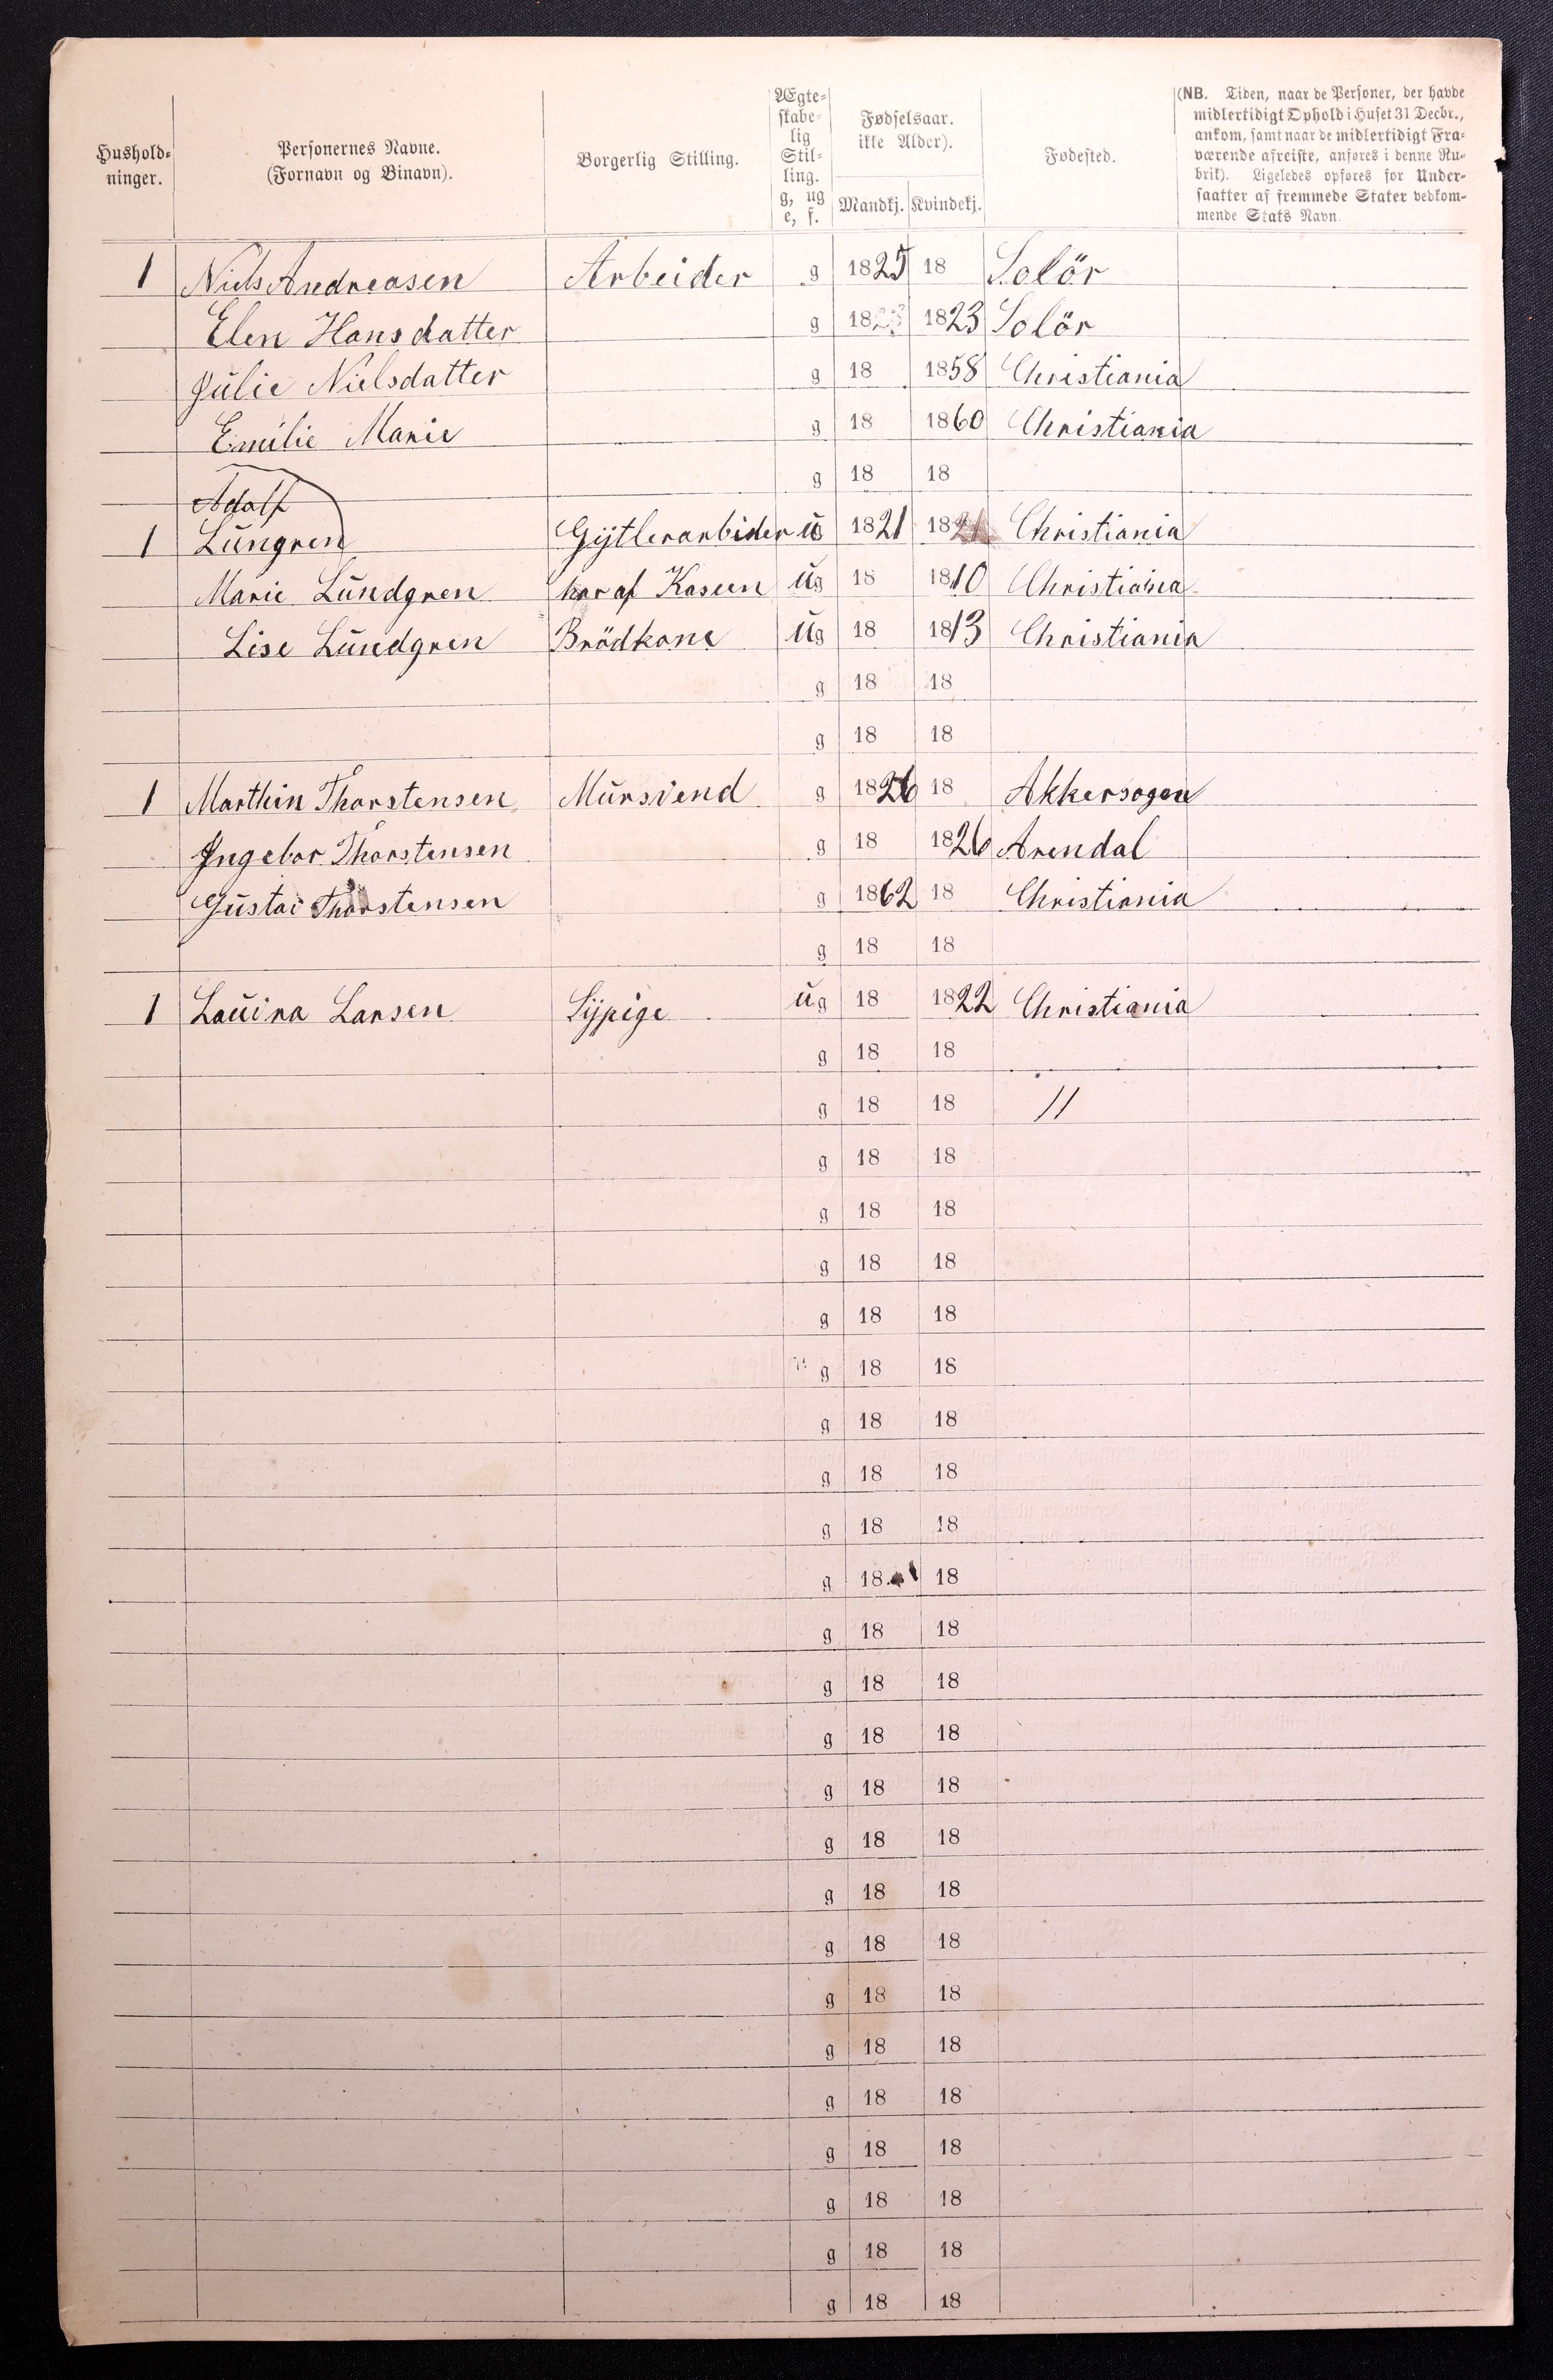 Hushold-
ninger.
Personernes Navne.
(Fornavn og Binavn).
Borgerlig Stilling.
Ægte-
skabe-
lig
Stil-
ling.
g, ug
e, f.
Fødselsaar.
ikke Alder).
Mandkj. Kvindekj.
Fødested.
(NB. Tiden, naar de Personer, der havde
midlertidigt Ophold i Huset 31 Decbr.,
ankom, samt naar de midlertidigt Fra-
værende afreiste, anføres i denne Ru-
brik). Ligeledes opføres for Under-
saatter af fremmede Stater vedkom-
mende Stats Navn.
1 Niels Andreasen Arbeider g 1825 18 Solör
Elen Hansdatter g 1823 1823 Solör
Julie Nielsdatter g 18 1858 Christiania
Emilie Marie g 18 1860 Christiania
g 18 18
Adolf
1 Lungren Gÿtlerarbider u 1821 1821 Christiania
Marie Lundgren har af Kasen ug 18 1810 Christiania
Lise Lundgren Brödkone ug 18 1813 Christiania
g 18 18
g 18 18
1 Marthin Thorstensen Mursvend g 1826 18 Akkersogen
Ingebor Thorstensen g 18 1826 Arendal
Gustav Thorstensen g 1862 18 Christiania
g 18 18
1 Lauina Larsen Sÿpige ug 18 1822 Christiania
g 18 18
g 18 18 11
g 18 18
g 18 18
g 18 18
g 18 18
g 18 18
g 18 18
g 18 18
g 18 18
g 18 18
g 18 18
g 18 18
g 18 18
g 18 18
g 18 18
g 18 18
g 18 18
g 18 18
g 18 18
g 18 18
g 18 18
g 18 18
g 18 18
g 18 18